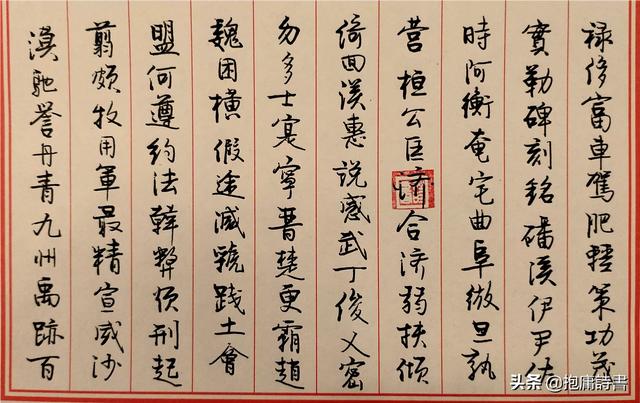 禄侈富車駕肥輕策功茂
實勒碑刻銘磻溪伊尹佐
時阿衡奄宅曲阜微旦孰
营桓公匡濟合济弱扶傾
綺回漢惠說感武丁俊乂密
勿多士寔寧晉楚更霸趙
魏困橫假途滅虢踐土會
盟何遵約法韓弊煩刑起
翦頗牧用軍最精宣威沙
漠馳譽丹青九州禹跡百
头条@抱庸詩書